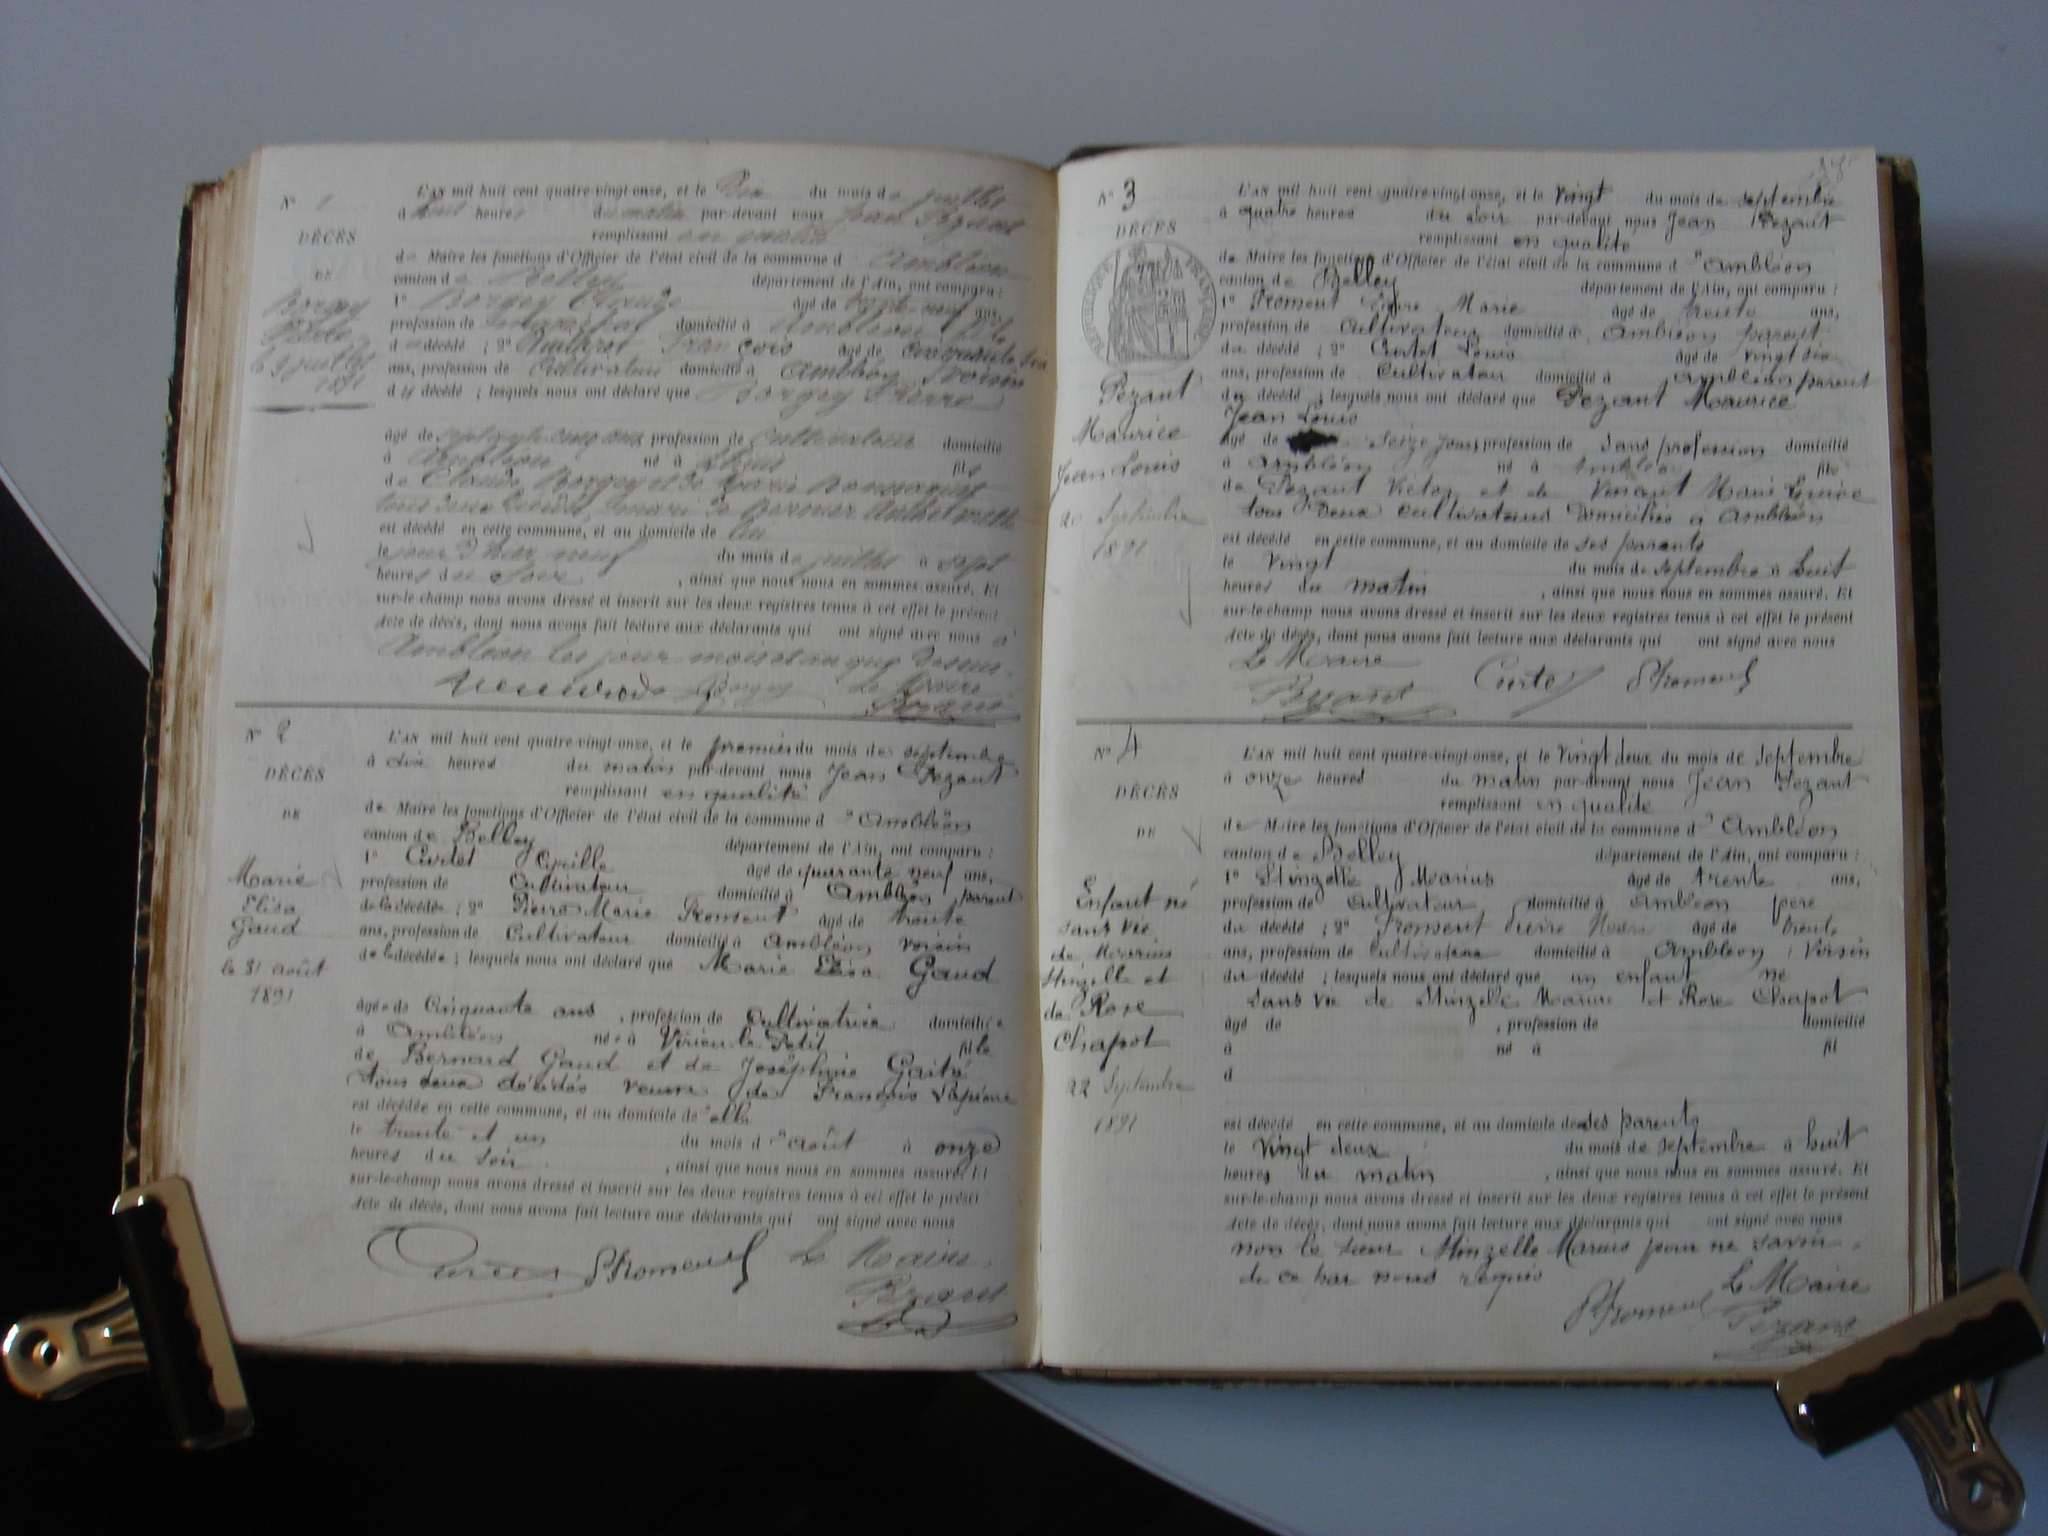 N° 1
DÉCÈS
DE
Borgey
Pierre
le 9 juillet
1891
L'AN mil huit cent quatre-vingt-onze, et le Dix du mois de juillet
à huit heures du matin par-devant nous Jean Pezant
remplissant en qualité
de Maire les fonctions d'Officier de l'état civil de la commune d'Ambléon
canton de Belley département de l'Ain, ont comparu :
1° Borgey Claude âgé de vingt-neuf ans,
profession de domicilié à Ambléon fils
du décédé ; 2° François âgé de cinquante six
ans, profession de Cultivateur domicilié à Ambléon voisin
du décédé ; lesquels nous ont déclaré que Borgey Pierre
âgé de septante cinq ans profession de Cultivateur domicilié
à Ambléon né à fils
de Claude Borgey et de Marie
tous deux décédés,
est décédé en cette commune, et au domicile de lui
le jour d'hier neuf du mois de juillet à sept
heures du soir , ainsi que nous nous en sommes assuré. Et
sur-le-champ nous avons dressé et inscrit sur les deux registres tenus à cet effet le présent
Acte de décès, dont nous avons fait lecture aux déclarants qui ont signé avec nous à
Ambléon les jour mois et an que dessus.
Borgey Le Maire
Pezant
N° 2
DÉCÈS
DE
Marie
Elisa
Gaud
le 31 août
1891
L'AN mil huit cent quatre-vingt-onze, et le premier du mois de septembre
à dix heures du matin par-devant nous Jean Pezant
remplissant en qualité
de Maire les fonctions d'Officier de l'état civil de la commune d'Ambléon
canton de Belley département de l'Ain, ont comparu :
1° Curtet Cyrille âgé de quarante neuf ans,
profession de Cultivateur domicilié à Ambléon parent
de la décédée ; 2° Pierre Marie Froment âgé de trente
ans, profession de Cultivateur domicilié à Ambléon voisin
de la décédée ; lesquels nous ont déclaré que Marie Elisa Gaud
âgée de Cinquante ans , profession de Cultivatrice domiciliée
à Ambléon née à Virieu-le-Petit fille
de Bernard Gaud et de Joséphine Gaité
tous deux décédés veuve de François Lapierre
est décédée en cette commune, et au domicile de elle
le trente et un du mois d'août à onze
heures du soir , ainsi que nous nous en sommes assuré. Et
sur-le-champ nous avons dressé et inscrit sur les deux registres tenus à cet effet le présent
Acte de décès, dont nous avons fait lecture aux déclarants qui ont signé avec nous
Curtet PFroment Le Maire
Pezant
N° 3
DÉCÈS
RÉPUBLIQUE FRANÇAISE
Pezant
Maurice
Jean Louis
20 Septembre
1891
L'AN mil huit cent quatre-vingt-onze, et le vingt du mois de septembre
à quatre heures du soir par-devant nous Jean Pezant
remplissant en qualité
de Maire les fonctions d'Officier de l'état civil de la commune d'Ambléon
canton de Belley département de l'Ain, ont comparu :
1° Froment Pierre Marie âgé de trente ans,
profession de Cultivateur domicilié à Ambléon parent
du décédé ; 2° Curtet Louis âgé de vingt six
ans, profession de Cultivateur domicilié à Ambléon parent
du décédé ; lesquels nous ont déclaré que Pezant Maurice
Jean Louis
âgé de seize jours profession de sans profession domicilié
à Ambléon né à Ambléon fils
de Pezant Victor et de Vincent Marie Louise
tous deux cultivateurs domiciliés à Ambléon
est décédé en cette commune, et au domicile de ses parents
le vingt du mois de septembre à huit
heures du matin , ainsi que nous nous en sommes assuré. Et
sur-le-champ nous avons dressé et inscrit sur les deux registres tenus à cet effet le présent
Acte de décès, dont nous avons fait lecture aux déclarants qui ont signé avec nous
Le Maire
Pezant Curtet PFroment
N° 4
DÉCÈS
DE
Enfant né
sans vie
de Marius
Stinzelle et
de Rose
Chapot
22 Septembre
1891
L'AN mil huit cent quatre-vingt-onze, et le vingt deux du mois de septembre
à onze heures du matin par-devant nous Jean Pezant
remplissant en qualité
de Maire les fonctions d'Officier de l'état civil de la commune d'Ambléon
canton de Belley département de l'Ain, ont comparu :
1° Stinzelle Marius âgé de trente ans,
profession de Cultivateur domicilié à Ambléon père
du décédé ; 2° Froment Pierre Marie âgé de trente
ans, profession de Cultivateur domicilié à Ambléon voisin
du décédé ; lesquels nous ont déclaré que un enfant né
sans vie de Stinzelle Marius et Rose Chapot
âgé de , profession de domicilié
à né à fil
d
est décédé en cette commune, et au domicile de ses parents
le vingt deux du mois de septembre à huit
heures du matin , ainsi que nous nous en sommes assuré. Et
sur-le-champ nous avons dressé et inscrit sur les deux registres tenus à cet effet le présent
Acte de décès, dont nous avons fait lecture aux déclarants qui ont signé avec nous
non le sieur Stinzelle Marius pour ne savoir
de ce par nous requis
Le Maire
PFroment Pezant